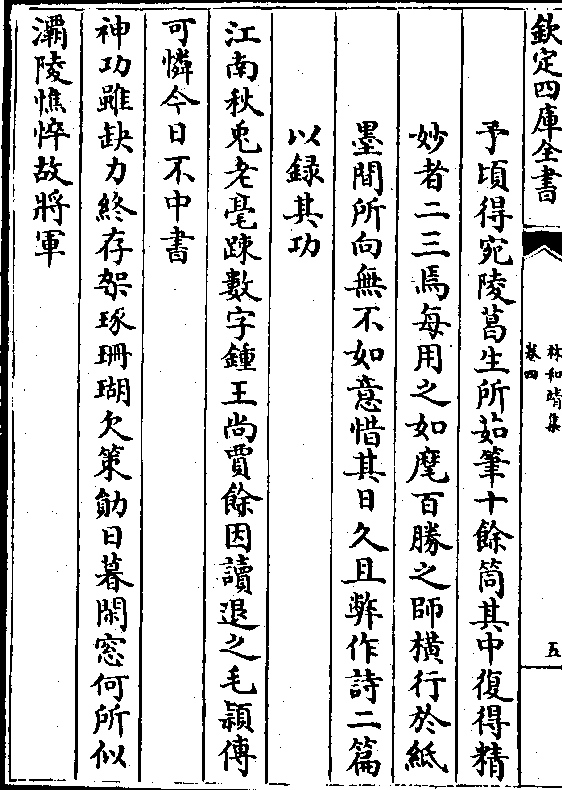 欽定四庫全書
林和靖集
卷四
五
予頃得宛陵葛生所茹筆十餘筒其中復得精
妙者二三焉每用之如麾百勝之師横行於紙
墨間所向無不如意惜其日久且弊作詩二篇
以録其功
江南秋兎老毫踈數字鍾王尚賈餘因讀退之毛頴傳
可憐今日不中書
神功雖缺力終存架琢珊瑚欠策勛日暮閑窓何所似
灞陵憔悴故將軍